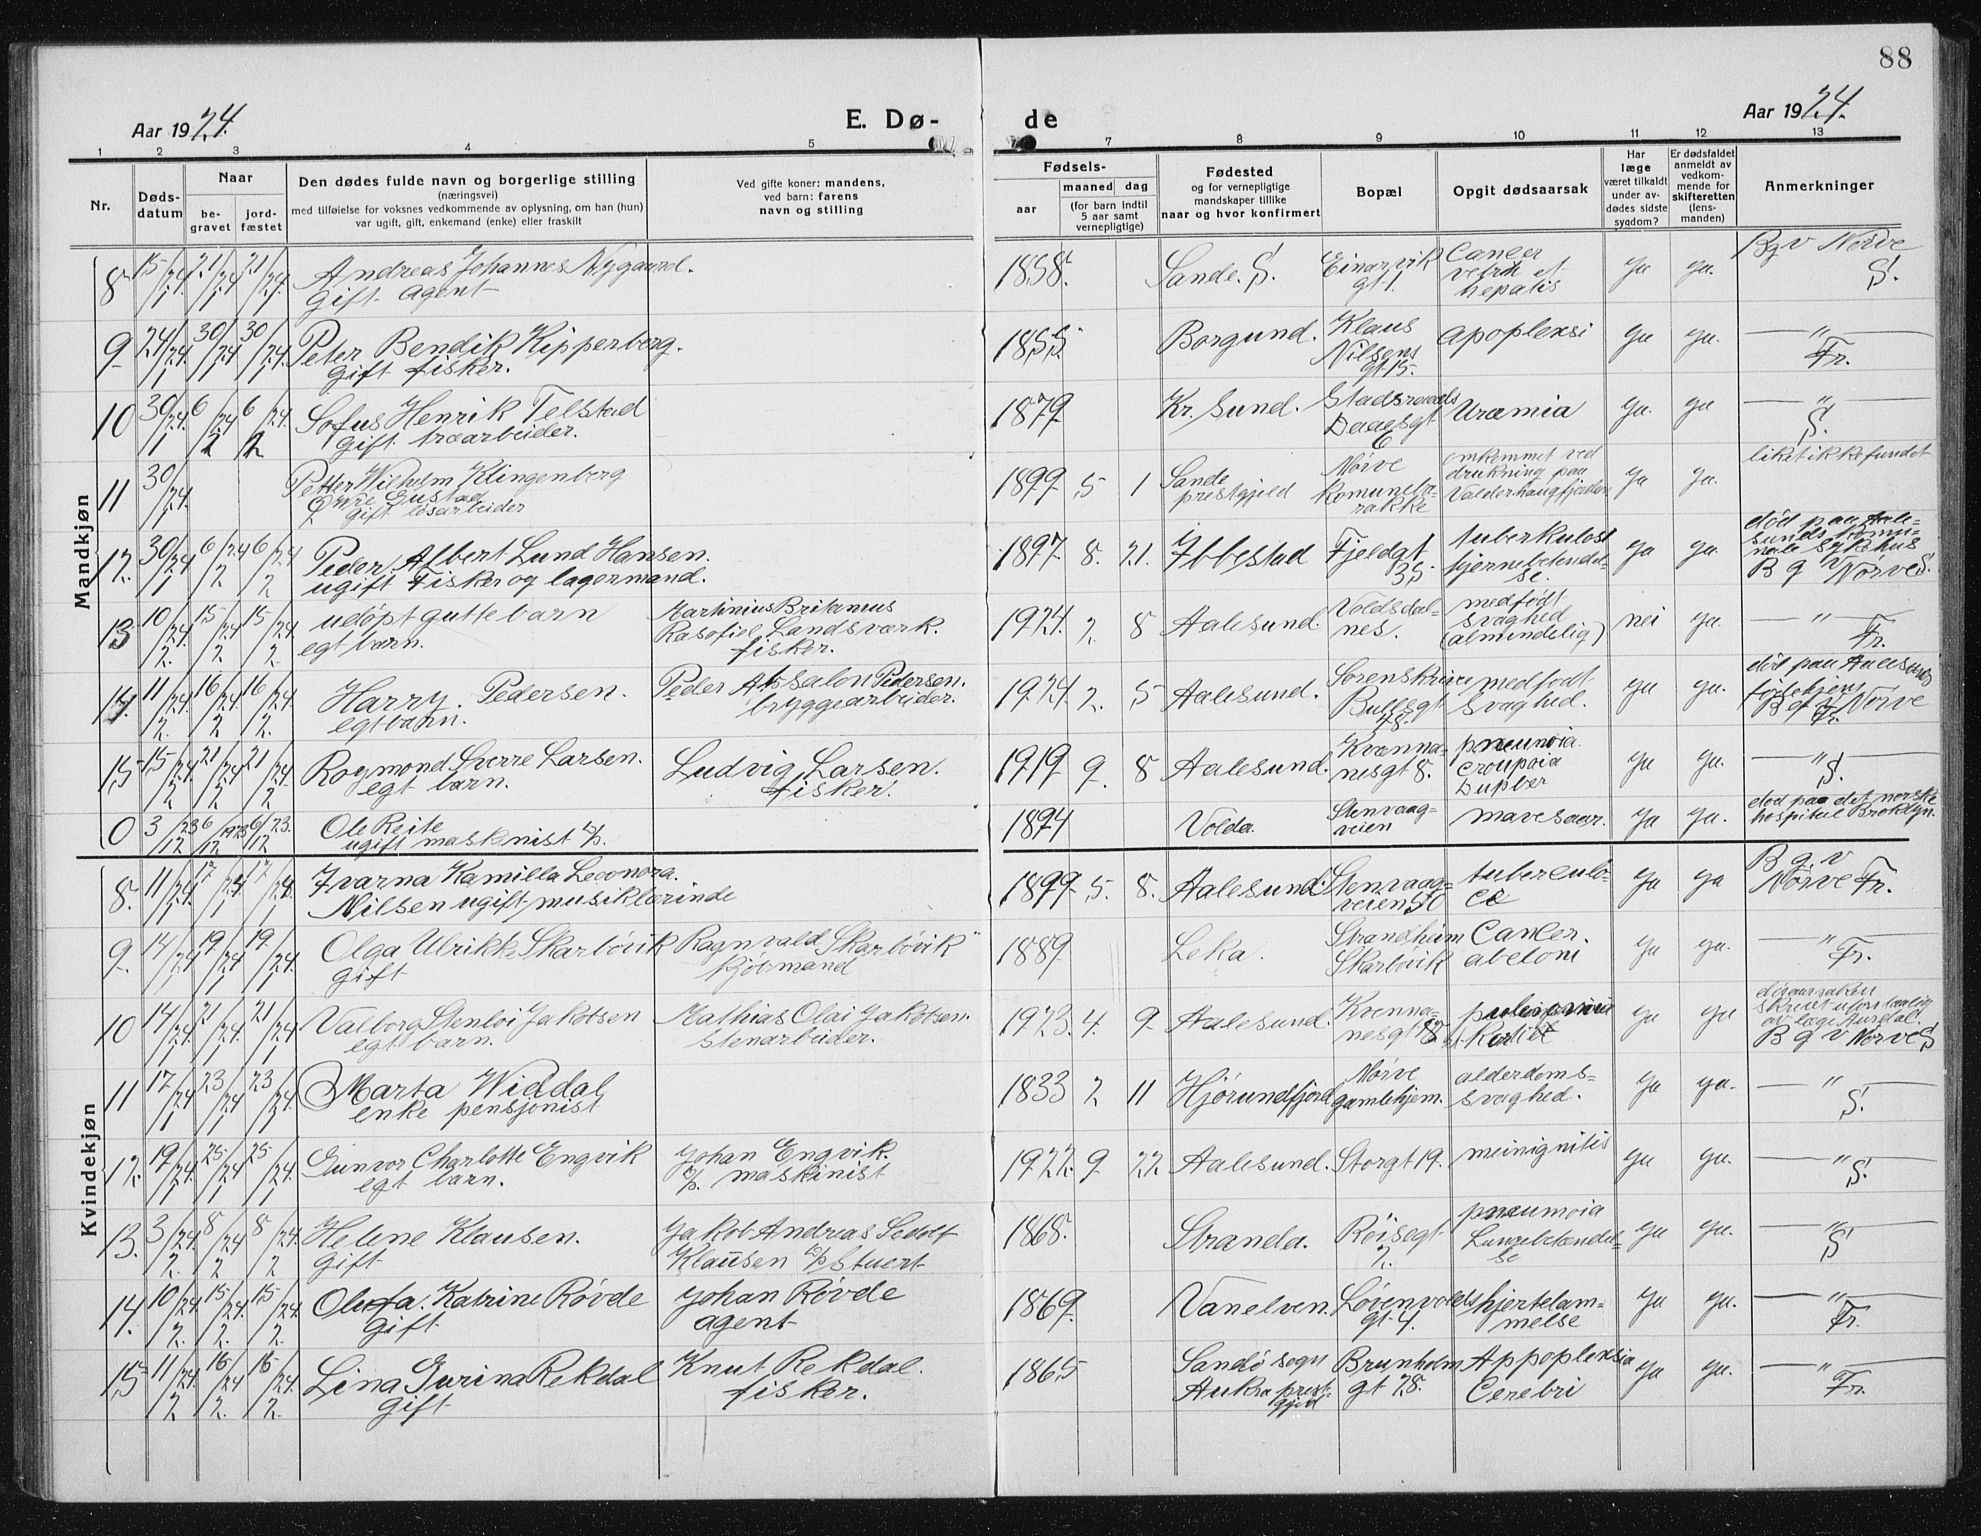 88
Aar 1924.
E. Dø-
de
Aar 1924.
1 2 3 4 5 7 8 9 10 11 12 13
Nr.
Døds-
datum
Naar
be-
gravet
jord-
fæstet
Den dødes fulde navn og borgerlige stilling
(næringsvei)
med tilføielse for voksnes vedkommende av oplysning, om han (hun)
var ugift, gift, enkemand (enke) eller fraskilt
Ved gifte koner: mandens,
ved barn: farens
navn og stilling
Fødsels-
aar
maaned dag
(for barn indtil
5 aar samt
vernepligtige)
Fødested
og for vernepligtige
mandskaper tillike
naar og hvor konfirmert
Bopæl
Opgit dødsaarsak
Har
læge
været tilkaldt
under av-
dødes sidste
sygdom?
Er dødsfaldet
anmeldt av
vedkom-
mende for
skifteretten
(lens-
manden)
Anmerkninger
Mandkjøn
8 15/1 24. 21/1 24 21/1 24. Andreas Johannes Nygaard.
gift agent
1858. Sande. S. Einarvik
gt 1. Cancer
et
hepatis ja ja. Bgv Nørve
S.
9 24/1 24. 30/1 24 30/1 24. Peter Bendik Kipperberg.
gift fisker.
1855 Borgund. Klaus
Nilsens
gt 15. apopleksi ja ja. —"—
Fr.
10 30/1 24. 6/2 24 6/2 24. Sofus Henrik Telstad
gift træarbeider.
1879 Kr. Sund. Stadsraads
Daaesgt
6 Uræmia ja. ja —"—
S.
11 30/1 24. Petter Wilhelm Klingenberg
gift løsarbeider
1899 5 1 Sande
prestgjeld Nørve
komuneba-
rakke omkommet ved
drukning paa
Valderhaugfjorden ja ja. liket ikke fundet
12. 30/1 24 6/2 24 6/2 24 Peder Albert Lund Hansen.
ugift fisker og lagermand.
1897 8. 21. Ibbestad Fjeldgt.
35 tuberkuløst
hjernebetendel-
se. ja ja. død paa Aale-
sunds komu-
nale sykehus
B g v Nørve S.
13 10/2 24. 15/2 24 15/2 24. udøpt guttebarn
egt barn.
Martinius Britanius
Landsværk.
fisker.
1924. 2 8 Aalesund. Voldsdal-
nes. medfødt
svaghed
(almindelig) nei ja. —"—
Fr.
14. 11/2 24. 16/2 24 16/2 24. Harry. Pedersen.
egt barn.
Peder Absalon Pedersen.
bryggearbeider.
1924. 2 5 Aalesund. Sorenskriver
Bullsgt
48. medfødt
svaghed. ja ja. død paa Aalesunds
fødehjem
B g v Nørve
Fr.
15 15/2 24. 21/2 24 21/2 24. Rogmond Sverre Larsen.
egt barn.
Ludvig Larsen.
fisker.
1919 9 8 Aalesund. Kvenna-
nesgt 8. pneunoia
croupoia
Dupber ja ja. —"—
S.
0 3/12 23 6/12 1923 6/12 23. Ole Reite
ugift maskinist d/s.
1894 Volda. Stenvaag-
veien mavesaar. ja ja. død paa det norske
hospital Broklyn.
Kvindekjøn
8. 11/1 24. 17/1 24 17/1 24. Ivarna Kamilla Leonora.
Nilsen ugift musiklærinde
1899 5. 8. Aalesund. Stenvaag-
veien 50 tuberculo-
ce ja ja B g. v
Nørve Fr.
9. 14/1 24 19/1 24 19/1 24. Olga Ulrikke Skarbövik
gift
Ragnvald Skarbövik
kjöbmand
1889 Leka. Strandheim
Skarbövik Cancer.
abeloni ja ja. —"—
Fr.
10 14/1 24. 21/1 24. 21/1 24 Valborg Stenløi Jakobsen
egt barn.
Mathias Olai Jakobsen.
stenarbeider.
1923. 4. 9. Aalesund. Kvenna-
nesgt ja ja dösaarsaken
skrevet uforstaalig
av læge Aursdal.
B g v Nørve S
11 17/1 24 23/1 24 23/1 24. Marta Widdal
enke pensjonist
1833 2 11 Hjörundfjord Nørve
gamlehjem. alderdoms-
svaghed. ja ja. —"—
S.
12. 19/1 24 25/1 24 25/1 24. Gunvor Charlotte Engvik
egt barn.
Johan Engvik.
d/s. maskinist
1922. 9. 22. Aalesund. Storgt 19. meinignitis ja ja. —"—
S.
13. 3/2 24. 8/2 24 8/2 24. Helene Klausen.
gift
Jakob Andreas Sedolf
Klausen d/s Stuert
1868. Stranda. Röisegt
2. pneumoia
Lungebetendel-
se ja ja. —"—
S
14. 10/2 24. 15/2 24. 15/2 24. Olufa. Katrine Røvde
gift
Johan Røvde
agent
1869 Vanelven. Løvenvolds
gt. 4. hjertelam-
melse ja ja. —"—
Fr.
15 11/2 24. 16/2 24 16/2 24. Lina Gurina Rekdal
gift
Knut Rekdal.
fisker.
1865 Sandö sogn
Aukra prest-
gjeld Brunholm
gt 28. Appopleksia
Cerebri ja ja. —"—
Fr.